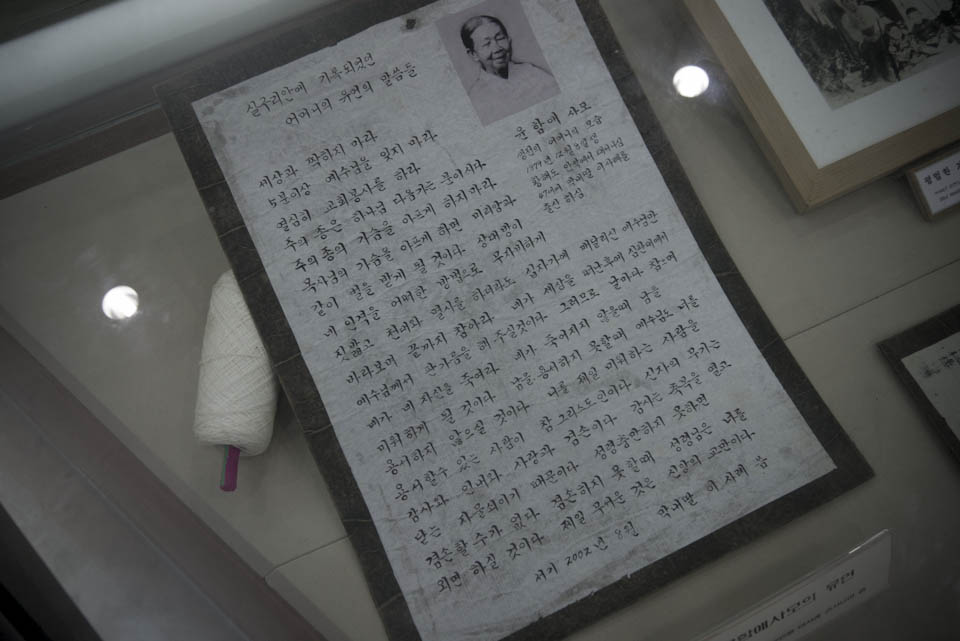 실국리안에 기록되었던
어머니의 유언의 말씀들
윤함애 사모
세상과 짝하지 마라
5분이상 예수님을 잊지 마라
열심히 교회봉사를 하라
주의 종은 하나님 다음가는 분이시다
주의 종의 가슴을 아프게 하지 마라
목사님의 가슴을 아프게 하면 미리암과
같이 벌을 받게 될 것이다 상대방이
네 인격을 어떠한 방법으로 무시하게
짓밟고 천대와 멸시를 하더라도 십자가에 매달리신 예수님만
바라보며 끝까지 참아라 네가 세상을 떠난후에 심판대에서
예수님께서 판가름을 해 주실것이다 그러므로 날마다 참으며
네가 네 자신을 죽여라 네가 죽어지지 않을때 남을
미워하게 될 것이다 남을 용서하지 못할때 예수님도 너를
용서하지 않으실 것이다 너를 제일 미워하는 사람을
용서할수 있는 사람이 참 그리스도인이다 신자의 무기는
감사와 인내와 사랑과 겸손이다 감사는 축복을 열고
닫는 자물쇠이기 때문이다 성령충만하지 못하면
겸손할 수가 없다 겸손하지 못할때 성령님은 너를
외면 하실 것이다 제일 무서운 것은 신앙의 교만이다
서기 2002년 8월 막내딸 이 사례 씀